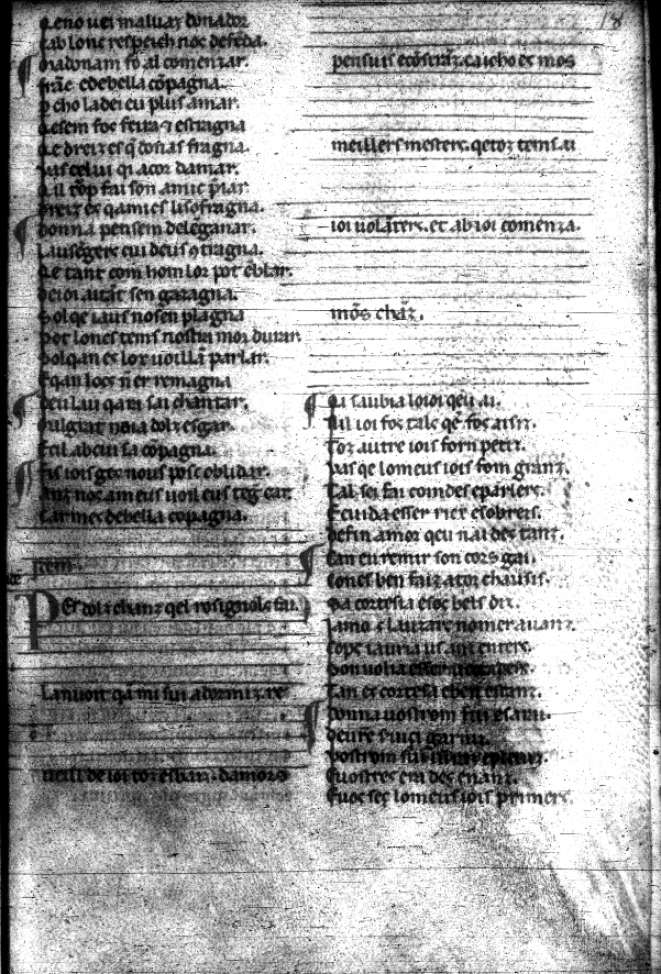 Qeno uei maluaz donador
cab lonc respeich noc defēda.
Madonam fō al comenzar.
frāc. edebella cōpagna.
p cho ladei eu plus amar.
qesem fos fera ⁊ estragna
qe dreiz es q̄ donas fragna.
uas celui qi acor damar.
Qil cōp fai son amic p̄iar.
dreiz es qamics lisofragna.
Donna pensem deleganar.
lausēgers cui deus ꝯtragna.
qe tant com hom lor pot ēblar.
deioi. aitāt sen gazagna.
Sol qe iaus nosen plagna
pot lonc tems nostra mor durar.
solqan es locs uoillā parlar.
Eqan locs ñ er remagna
Deu lau qara sai chantar.
mal grat naia dolz esgar.
Ecil abcui sa cōpagna.
Fis iois ges nous posc eblidar.
anz uos am eus uoil eus teg̃ car.
Car mes debella copagna.
Item.
PEr dolz chanz qel rosignols fai.
La nuoit qā mi sui adormiz. re
ueill de ioi toz esbaiz. damors
18
pensius ecōsiraz. caicho es mos
meillers mesters. qe toz tems. ai
ioi uolūters. et ab ioi comenza.
mōs chāz.
Qi saubia lo ioi qeu ai.
qil ioi fos tals qē fos auziz.
Toz autre iois forn petiz.
uas qe lo meus iois fom granz.
Tal sei fai coindes eparlers.
Ecuida esser rics esobrers.
defin amor qeu nai des tanz.
Can eu remir son cors gai.
cones ben faiz a toz chausis.
Sa cortesia esos bels diz.
Ia mos lauzars nomer auanz.
cops iauria us anz enters.
Tan es cortesa eben estanz.
Donna uostrom sui esarai.
deure seruici garniz.
Vostrom sui
Euostres era des enanz.
Euos seç lo meus iois primers.